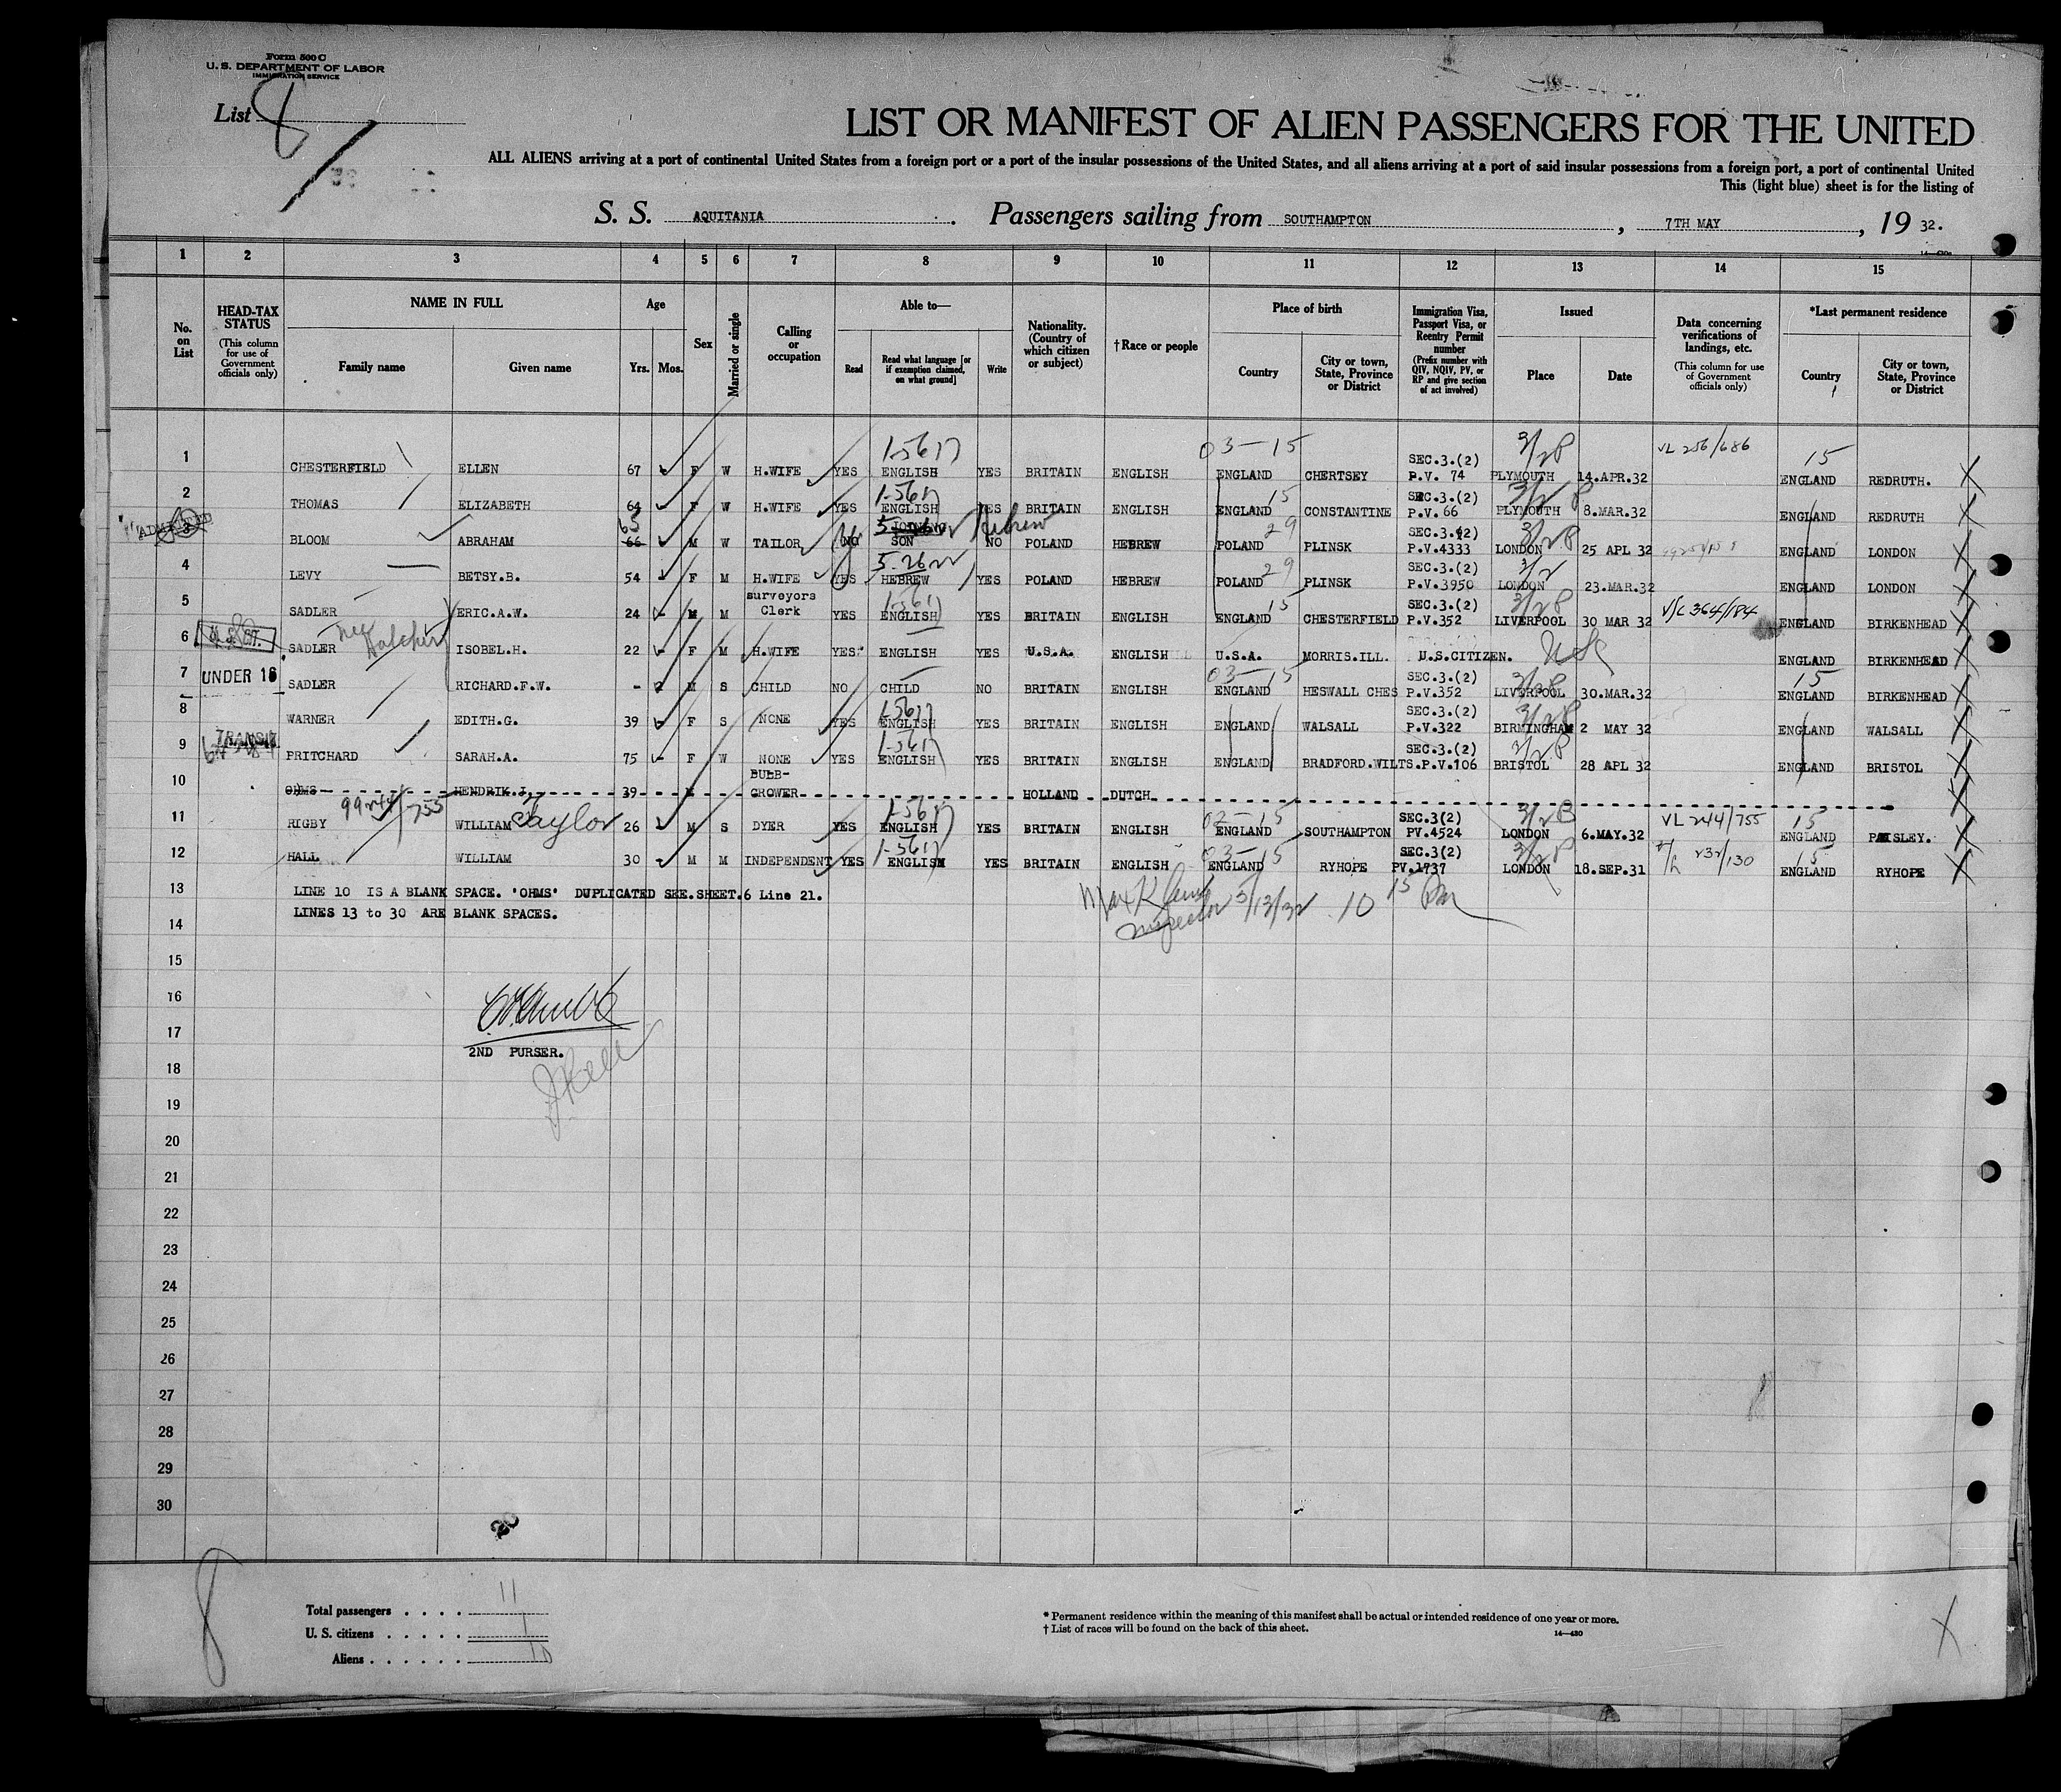 Form 500 C
U. S. DEPARTMENT OF LABOR
IMMIGRATION SERVICE
List 8
LIST OR MANIFEST OF ALIEN PASSENGERS FOR THE UNITED
ALL ALIENS arriving at a port of continental United States from a foreign port or a port of the insular possessions of the United States, and all aliens arriving at a port of said insular possessions from a foreign port, a port of continental United
This (light blue) sheet is for the listing of
S. S. AQUITANIA . Passengers sailing from SOUTHAMPTON , 7TH MAY , 19 32.
1 2 3 4 5 6 7 8 9 10 11 12 13 14 15
No. on List
HEAD-TAX STATUS (This column for use of Government officials only)
NAME IN FULL
Family name
Given name
Age
Yrs. Mos.
Sex
Married or single
Calling or occupation
Able to—
Read
Read what language [or if exemption claimed, on what ground]
Write
Nationality. (Country of which citizen or subject)
†Race or people
Place of birth
Country
City or town, State, Province or District
Immigration Visa, Passport Visa, or Reentry Permit number (Prefix number with QIV, NQIV, PV, or RP and give section of act involved)
Issued
Place
Date
Data concerning verifications of landings, etc. (This column for use of Government officials only)
*Last permanent residence
Country
City or town, State, Province or District
1 CHESTERFIELD ELLEN 67 F W H.WIFE YES ENGLISH YES BRITAIN ENGLISH ENGLAND CHERTSEY SEC.3.(2) P.V. 74 PLYMOUTH 14.APR.32 VL 256/686 ENGLAND REDRUTH.
2 THOMAS ELIZABETH 64 F W H.WIFE YES ENGLISH YES BRITAIN ENGLISH ENGLAND CONSTANTINE SEC.3.(2) P.V. 66 PLYMOUTH 8.MAR.32 ENGLAND REDRUTH
BLOOM ABRAHAM 65 66 M W TAILOR NO SON Hebrew NO POLAND HEBREW POLAND PLINSK SEC.3.(2) P.V.4333 LONDON 25 APL 32 ENGLAND LONDON
4 LEVY BETSY.B. 54 F M H.WIFE YES HEBREW YES POLAND HEBREW POLAND PLINSK SEC.3.(2) P.V.3950 LONDON 23.MAR.32 ENGLAND LONDON
5 SADLER ERIC.A.W. 24 M M surveyors Clerk YES ENGLISH YES BRITAIN ENGLISH ENGLAND CHESTERFIELD SEC.3.(2) P.V.352 LIVERPOOL 30 MAR 32 V/L 364/184 ENGLAND BIRKENHEAD
6 SADLER ISOBEL.H. 22 F M H.WIFE YES ENGLISH YES U.S.A. ENGLISH U.S.A. MORRIS.ILL. U.S.CITIZEN. ENGLAND BIRKENHEAD
7 UNDER 16 SADLER RICHARD.F.W. - 2 M S CHILD NO CHILD NO BRITAIN ENGLISH ENGLAND HESWALL CHES SEC.3.(2) P.V.352 LIVERPOOL 30.MAR.32 ENGLAND BIRKENHEAD
8 WARNER EDITH.G. 39 F S NONE YES ENGLISH YES BRITAIN ENGLISH ENGLAND WALSALL SEC.3.(2) P.V.322 BIRMINGHAM 2 MAY 32 ENGLAND WALSALL
TRANSIT
9 PRITCHARD SARAH.A. 75 F W NONE YES ENGLISH YES BRITAIN ENGLISH ENGLAND BRADFORD.WILTS. SEC.3.(2) P.V.106 BRISTOL 28 APL 32 ENGLAND BRISTOL
10 OHMS HENDRIK.J. 39 BULB-GROWER HOLLAND DUTCH
11 RIGBY WILLIAM Saylor 26 M S DYER YES ENGLISH YES BRITAIN ENGLISH ENGLAND SOUTHAMPTON SEC.3(2) PV.4524 LONDON 6.MAY.32 VL 244/755 ENGLAND PAISLEY.
12 HALL WILLIAM 30 M M INDEPENDENT YES ENGLISH YES BRITAIN ENGLISH ENGLAND RYHOPE SEC.3(2) PV.1737 LONDON 18.SEP.31 232/130 ENGLAND RYHOPE
13 LINE 10 IS A BLANK SPACE. 'OHMS' DUPLICATED SEE.SHEET.6 Line 21.
LINES 13 to 30 ARE BLANK SPACES.
Inspector 5/13/32 10 15 Pm
14
15
16
17
2ND PURSER.
18
19
20
21
22
23
24
25
26
27
28
29
30
8
Total passengers . . . . 11
U. S. citizens . . . . . 1
Aliens . . . . . . 10
* Permanent residence within the meaning of this manifest shall be actual or intended residence of one year or more.
† List of races will be found on the back of this sheet.
14—430